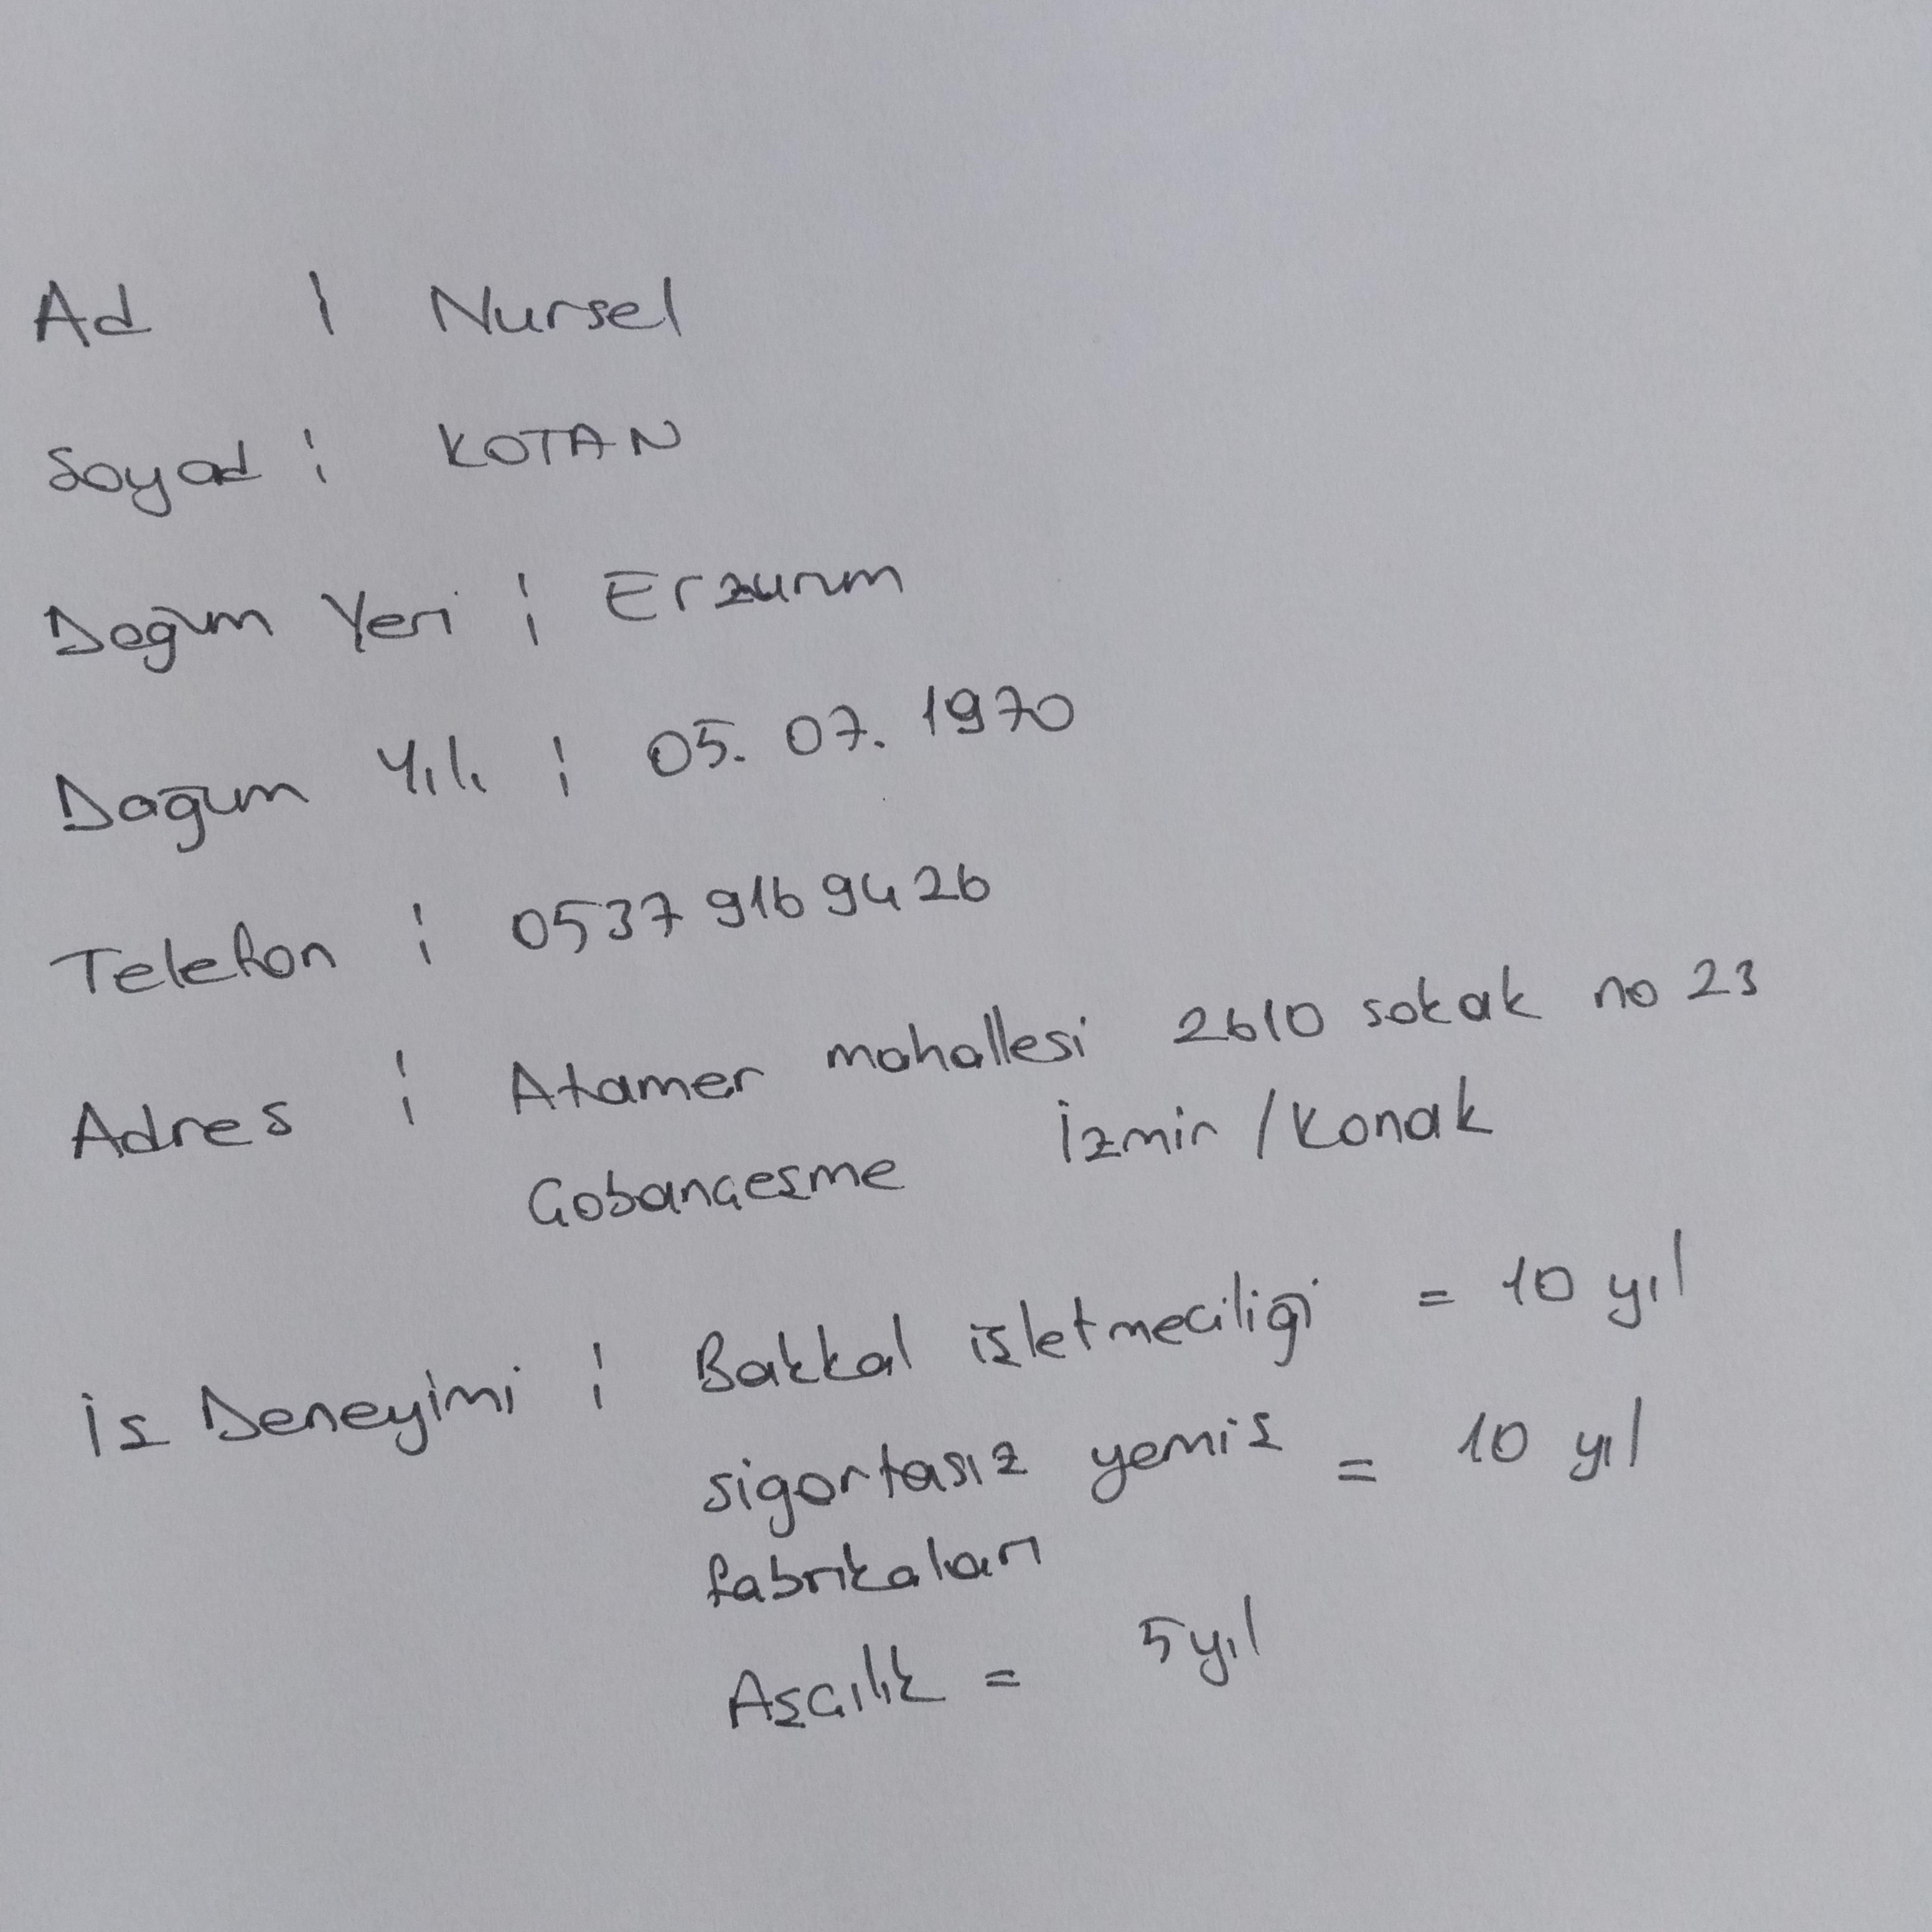 Ad : Nursel
Soyad : KOTAN
Doğum Yeri : Erzurum
Doğum Yılı : 05. 07. 1970
Telefon : 0537 916 94 26
Adres : Atamer mahallesi 2610 sokak no 23
Çobançeşme İzmir / Konak
İş Deneyimi : Bakkal işletmeciliği = 10 yıl
sigortasız yemiş = 10 yıl
fabrikaları
Aşçılık = 5 yıl